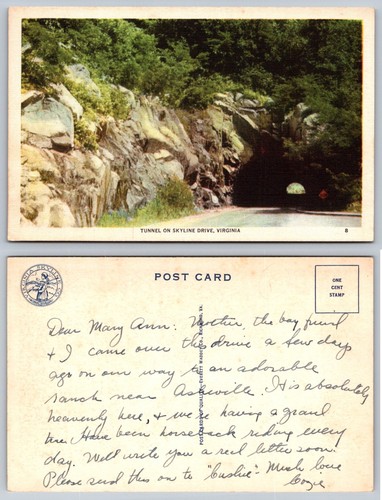 TUNNEL ON SKYLINE DRIVE, VIRGINIA
8
POST CARD
ONE
CENT
STAMP
Dear Mary Ann: Mother, the boy friend
& I came over this drive a few days
ago on our way to an adorable
ranch near Asheville. It is absolutely
heavenly here, & we're having a grand
time. Have been horseback riding every
day. Will write you a real letter soon.
Please send this on to "Cushie". Much love